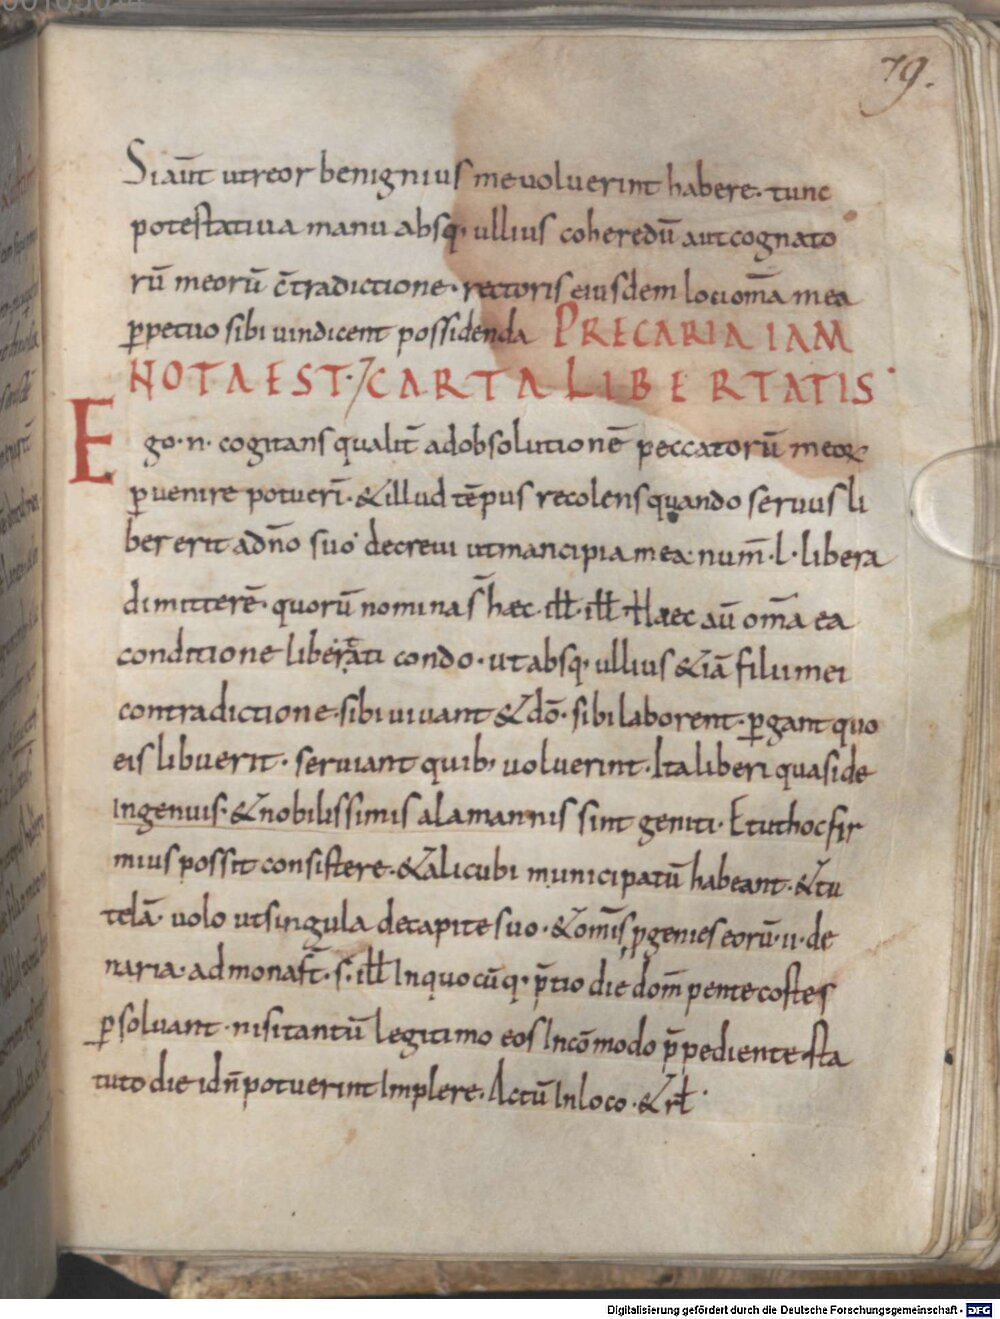 79.
Si aūt ut reor benignius me voluerint habere. tunc
potestativa manu absq; ullius coheredū aut cognato
rū meorū c̄tradictione. rectoris eiusdem loci om̄a mea
p̱petuo sibi vindicent possidenda PRECARIA IAM
NOTA EST. ⁊ CARTA LIBERTATIS
Ego .n. cogitans qualit̄ ad obsolutionē peccatorū meoꝝ
ꝑvenire potueri̅. & illud tēpus recolens quando servus li
ber erit a dn̄o suo decrevi ut mancipia mea num̄. l. libera
dimitterē. quorū nomina s̄ hæc. ill̵. ill̵. Haec au̅ om̄a ea
conditione liberati condo. ut absq; ullius &iā filii mei
contradictione. sibi vivant & dō. sibi laborent. ꝑgant quo
eis libuerit. serviant quib; voluerint. Ita liberi quasi de
ingenuis. & nobilissimis alamannis sint geniti. Et ut hoc fir
mius possit consistere. & alicubi municipatū habeant. & tu
telā. volo ut singula de capite suo. & om̅is ꝓgenies eorū. ii. de
naria. ad monast̄. s. ill̵ In quocūq; p̄tio die dom̄ pentecostes
ꝑsolvant. nisi tantū legitimo eos Incōmodo p̄pediente sta
tuto die id n̄ potuerint Implere. Actū In loco. & rł.
Digitalisierung gefördert durch die Deutsche Forschungsgemeinschaft - DFG